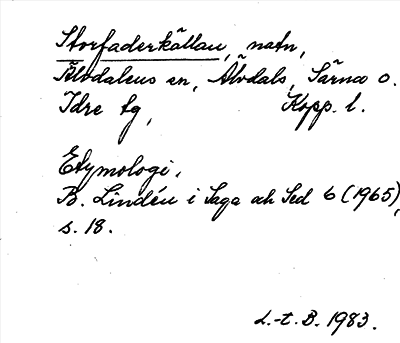 Storfaderkällan, natn,
Älvdalens sn, Älvdals, Särna o.
Idre tg, Kopp. l.
Etymologi,
B. Lindén i Saga och Sed 6 (1965),
s. 18.
L.-t. B. 1983.